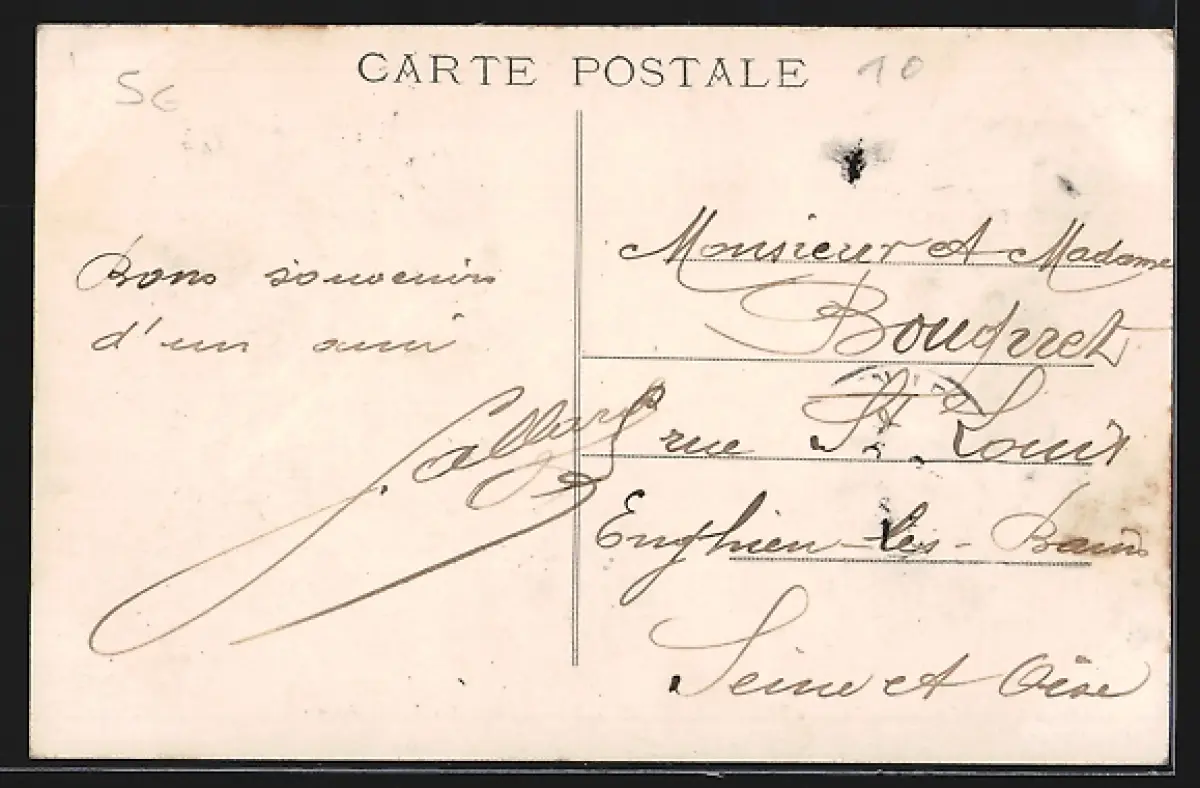 CARTE POSTALE
10
Bons souvenirs
d'un ami
Monsieur et Madame
rue St Louis
Enghien-les-Bains
Seine et Oise